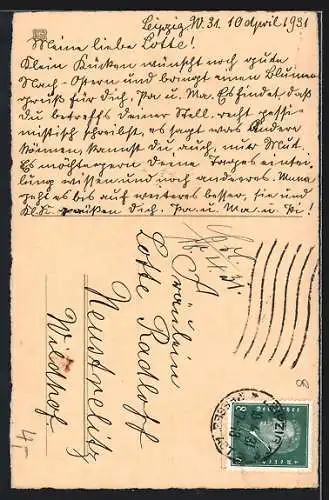 Leipzig W. 31. 10 April 1931
Meine liebe Lotte!
Klein Kücken wünscht noch gute
Nach-Ostern und bringt einen Blumen
gruß für Dich, Pa u. Ma. Es findet daß
du betreffs Deiner Stell. recht pessi-
mistisch schreibst, es sagt was andere
können, kannst Du auch, nur Mut.
Es möchte gern deine Tages eintei-
lung wissen und noch anderes. Mama
geht es bis auf weiteres besser, sie und
grüßen Dich, Pa. u. Ma. u.
Fräulein
Lotte Radloff
Neustrelitz
Wildhof.
Deutsches Reich
8
LEIPZIG
8
4-